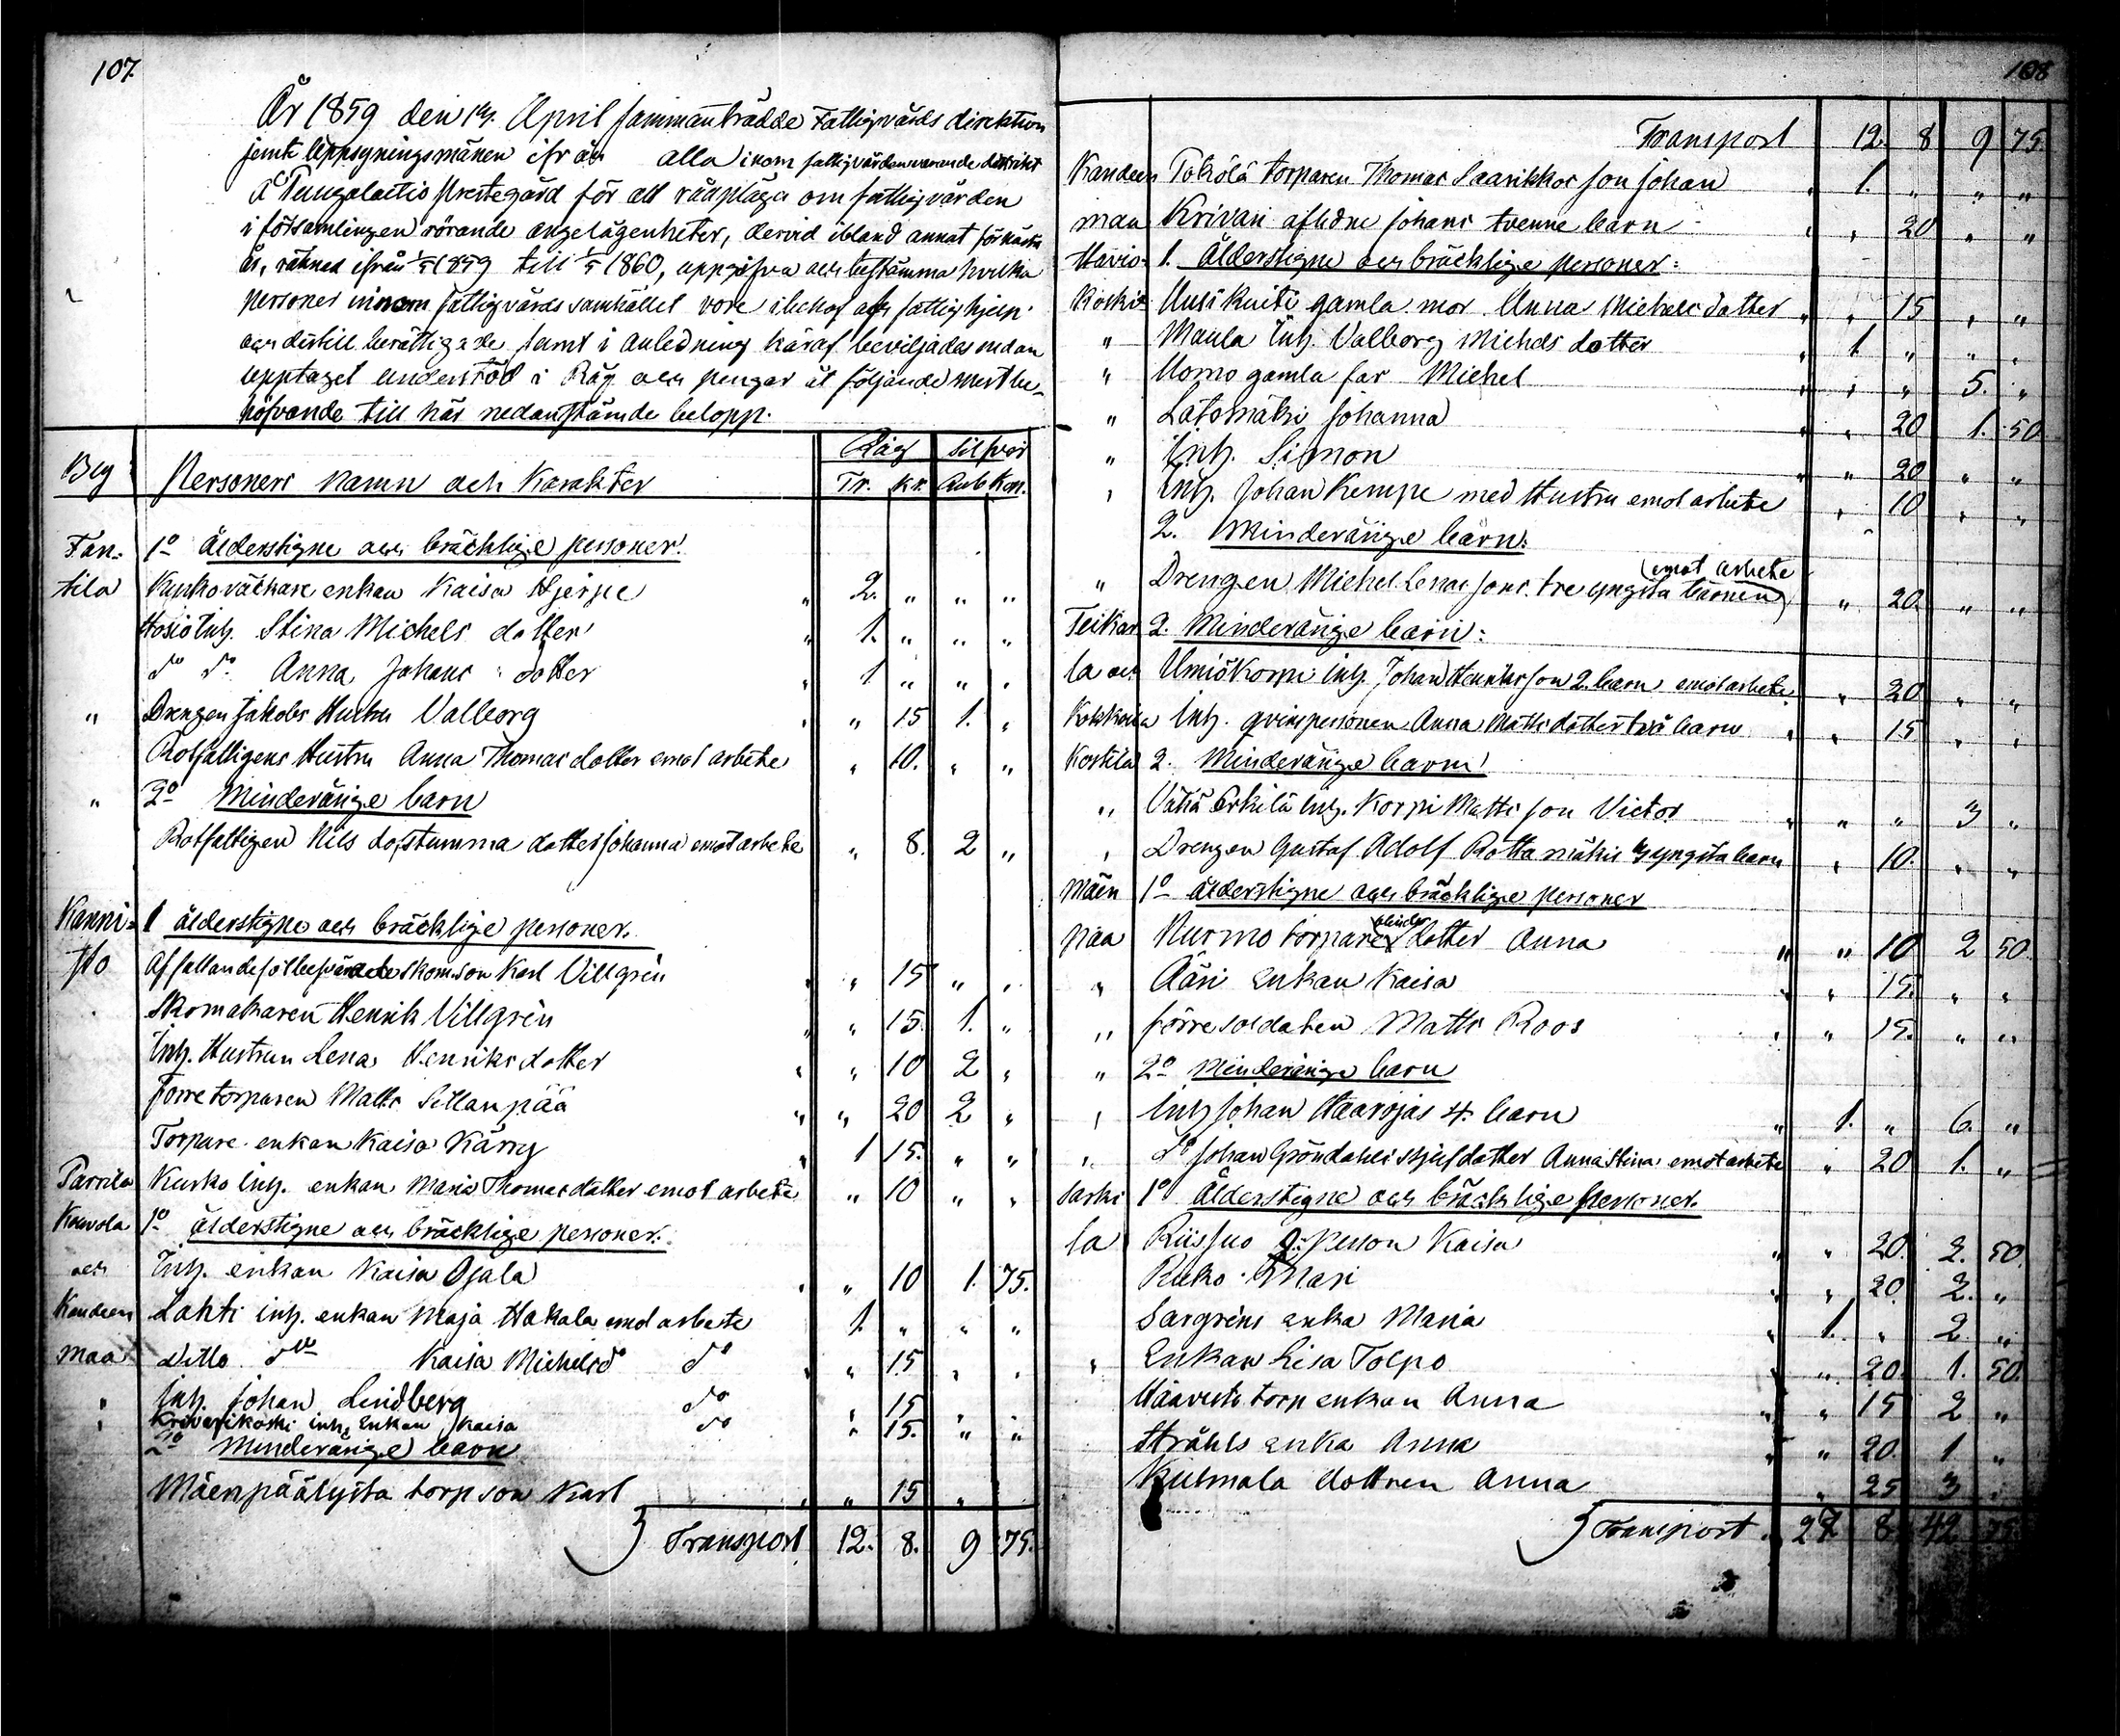 107.
År 1859 den 14 April sammanträdde Fattigvårds direktion
jemte Uppsyningsmänen ifrån alla inom fattigvården varande distrikt
å Tungalaitio Prestegård för att rådpläga om fattigvården
i församlingen rörande angelägenheter, dervid ibland annat för nästa
år, räknad ifrån 1/5 1859 till 1/5 1860, uppgifva och bestämma hvilka
personer innom fattigvårds samhället vore i behof af fattighjelp
och dertill berättigade samt i anledning häraf beviljades nedan
upptaget understöd i Råg och pengar åt följande mest be-
höfvande till här nedanstående belopp.
By Personers namn och Karakter Råg Silfver
Tr. Kr. Rub Kop.
Fan- 1o ålderstigne och bräcklige personer.
tila enkan Kaisa Hjerpe " 2. " " "
Hosio Inh. Stina Michels dotter " 1. " " "
do do Anna Johans dotter " 1 " " "
" Drengen Jakobs Hustru Valborg " " 15 1. "
Rotfattigens Hustru Anna Thomas dotter emot arbete " 10. " "
" 2o Minderårige barn
Rotfattigen Nils döfstumma dotter Johanna emot arbete " 8. 2 "
Kanni- 1 ålderstigne och bräcklige personer.
sto skom.son Karl Villgrén " " 15 " "
Skomakaren Henrik Villgrén " " 15. 1. "
Inh. Hustrun Lena Henriks dotter " " 10 2 "
Förre torparen Matts Sillanpää " " 20 2 "
Torpare enkan Kaisa Kärry " 1 15. " "
Parrila Kurko Inh. enkan Maria Thomas dotter emot arbete " 10 " "
Kouvola 1o ålderstigne och bräcklige personer.
och Inh. enkan Kaisa Ojala " " 10 1. 75.
Kandeen Lahti inh. enkan Maja Hakala emot arbete 1. " " "
maa Ditto do Kaisa Michelsd do " " 15 " "
" Inh. Johan Lindberg do " 15 " "
" Krivarikoski inh. Enkan Kaisa do " 15. " "
2o Minderårige barn
Mäenpäälyitä torp son Karl " " 15 "
Transport 12. 8. 9 75.
108
Transport 12. 8 9 75.
Kandeen Tokölä torparen Thomas Saarikkos son Johan " 1. " " "
maa Krivari aflidne Johans tvenne barn " " 20 " "
Havio- 1. Ålderstigne och bräcklige personer:
koskis Uusikuiti gamla mor Anna Michels dotter " " 15 " "
" Maula Inh. Valborg Michels dotter " 1 " " "
" Uomo gamla far Michel " " " 5. "
" Latomäki Johanna " " 20 1. 50
" Inh. Simon " " 20 " "
" Inh. Johan Kempe med Hustru emot arbete " 10 " "
2. Minderårige barn.
" Drengen Michel Lenas sons tre yngsta barnen (emot arbete) " 20 " "
Teikan- 2. Minderårige barn:
la och Umiökorpi inh. Johan Henriksson 2. barn emot arbete " 20 " "
Kokkoila Inh. qvinspersonen Anna Matts dotter två barn " " 15 " "
Kostila 2. Minderårige barn
" Vähä Erkilä Inh. Korpi Matts son Victor " " " 3 "
" Drengen Gustaf Adolf Rottamäkis yngsta barn " 10. " "
Mäen 1o ålderstigne och bräcklige personer
paa Nurmo torpares blinda dotter Anna " " 10 2 50
" Ääri Enkan Kaisa " " 15. " "
" förre soldaten Matts Roos " " 15. " "
" 2o Minderårige barn
" Inh Johan Haarojas 4. barn " 1. " 6. "
" Do Johan Gröndahls styfdotter Anna Stina emot arbete " 20 1. "
Sarki 1o Ålderstigne och bräcklige personer.
la Riissuo q. person Kaisa " " 20. 2. 50.
Ruko Mari " " 20 2. "
Sargréns enka Maria " 1. " 2 "
" Enkan Lisa Tolpo " 20. 1. 50.
torp enkan Anna " " 15 2 "
Stråhls enka Anna " " 20. 1 "
Kulmala dottren Anna " 25 3 "
Transport 27 8 42 75